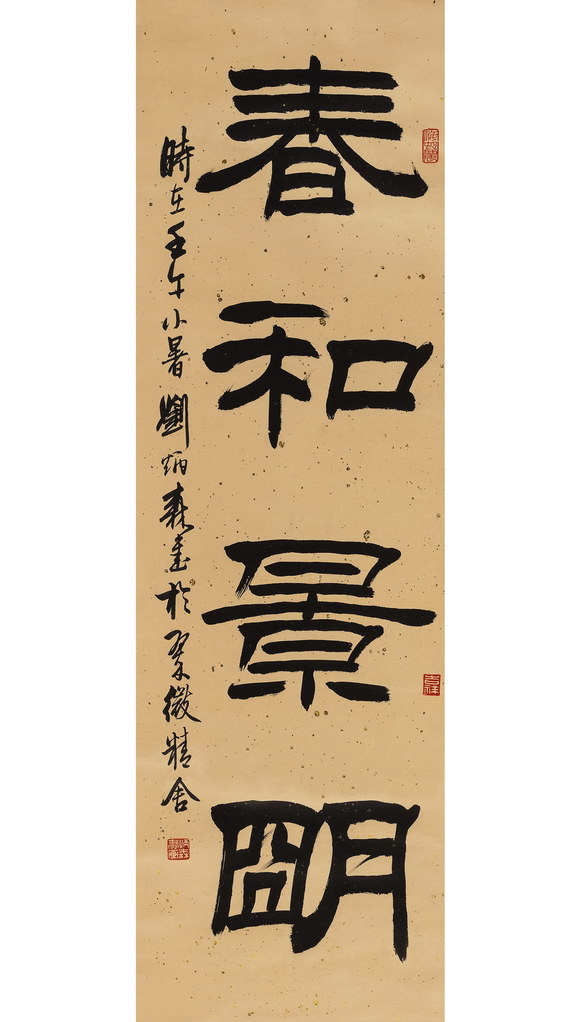 春和景明
時在壬午小暑劉炳森書於翠微精舍
吉祥